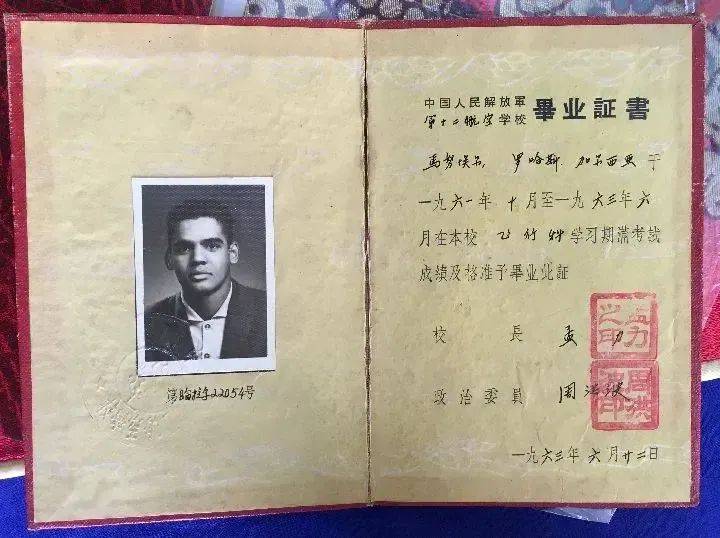 中国人民解放軍
第十二航空学校
畢业証書
馬努埃尔. 罗哈斯. 加尔西亚 于
一九六一年 十月至一九六三年六
月在本校 飞行科 学习期滿考試
成績及格准予畢业此証
校長 孟力
孟力之印
政治委員 周洪波
周洪波印
一九六三年 六月廿二日
22054号